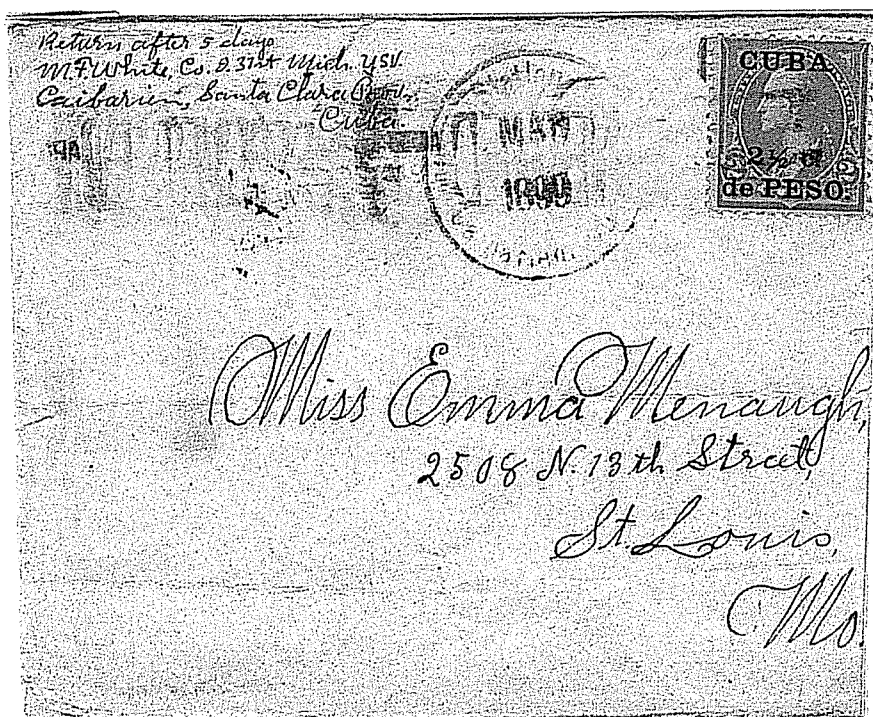 Return after 5 days
M.F. White, Co. D. 31st Mich. USV.
Caibarien, Santa Clara Prov.
Cuba.
MAR
1899
CUBA
2½ ct
de PESO.
Miss Emma Menaugh,
2508 N. 13th Street,
St. Louis,
Mo.